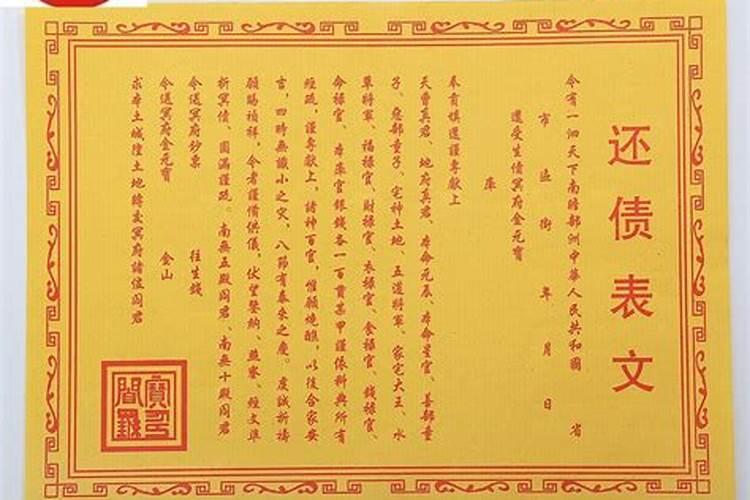 还债表文
今有一泗天下南瞻部洲中華人民共和國 省
市 區 街 年 月 日
還受生債冥府金元寶
庫
奉育填還謹專献上
天曹真君、地府真君、本命元辰、本命星官、善部童
子、惡部童子、宅神土地、五道將軍、家宅大王、水
草將軍、福禄官、財禄官、衣禄官、食禄官、錢禄官、
命禄官、本庫官銀錢各一百贯某甲謹依科典所有
經疏，謹專献上，諸神百官，惟願燒醮，以後合家安
言，四時無識小之灾，八節有泰来之慶。虔誠祈禱
願賜禎祥，今者謹備供儀，伏望鑒納、燕寥、經文準
折冥債、圆滿謹疏。南無五殿阎君、南無十殿阎君
令送冥府钞票 往生錢
令送冥府金元寶 金山
求本土城隍土地轉交冥府諸位阎君